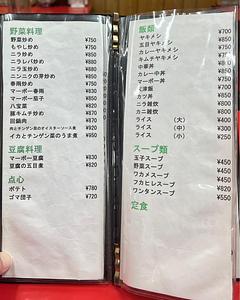 野菜料理
野菜炒め ¥750
もやし炒め ¥750
ニラ炒め ¥750
ニラレバ炒め ¥800
ニラ玉炒め ¥800
ニンニクの芽炒め ¥850
春雨炒め ¥750
マーボー春雨 ¥830
マーボー茄子 ¥850
八宝菜 ¥820
豚キムチ炒め ¥820
回鍋肉 ¥920
肉とチンゲン菜のオイスターソース煮 ¥920
イカとチンゲン菜のうま煮 ¥950
豆腐料理
マーボー豆腐 ¥830
豆腐の五目煮 ¥820
点心
ポテト ¥780
ゴマ団子 ¥720
飯類
ヤキメシ ¥700
五目ヤキメシ
カレーヤキメシ
キムチヤキメシ
中華丼
カレー中丼
マーボー丼
天津飯
カツ丼
ニラ雑炊
カニ雑炊
ライス (大) ¥400
ライス (中) ¥300
ライス (小) ¥250
スープ類
玉子スープ ¥450
野菜スープ ¥450
ワカメスープ ¥450
フカヒレスープ ¥820
ワンタンスープ ¥550
定食